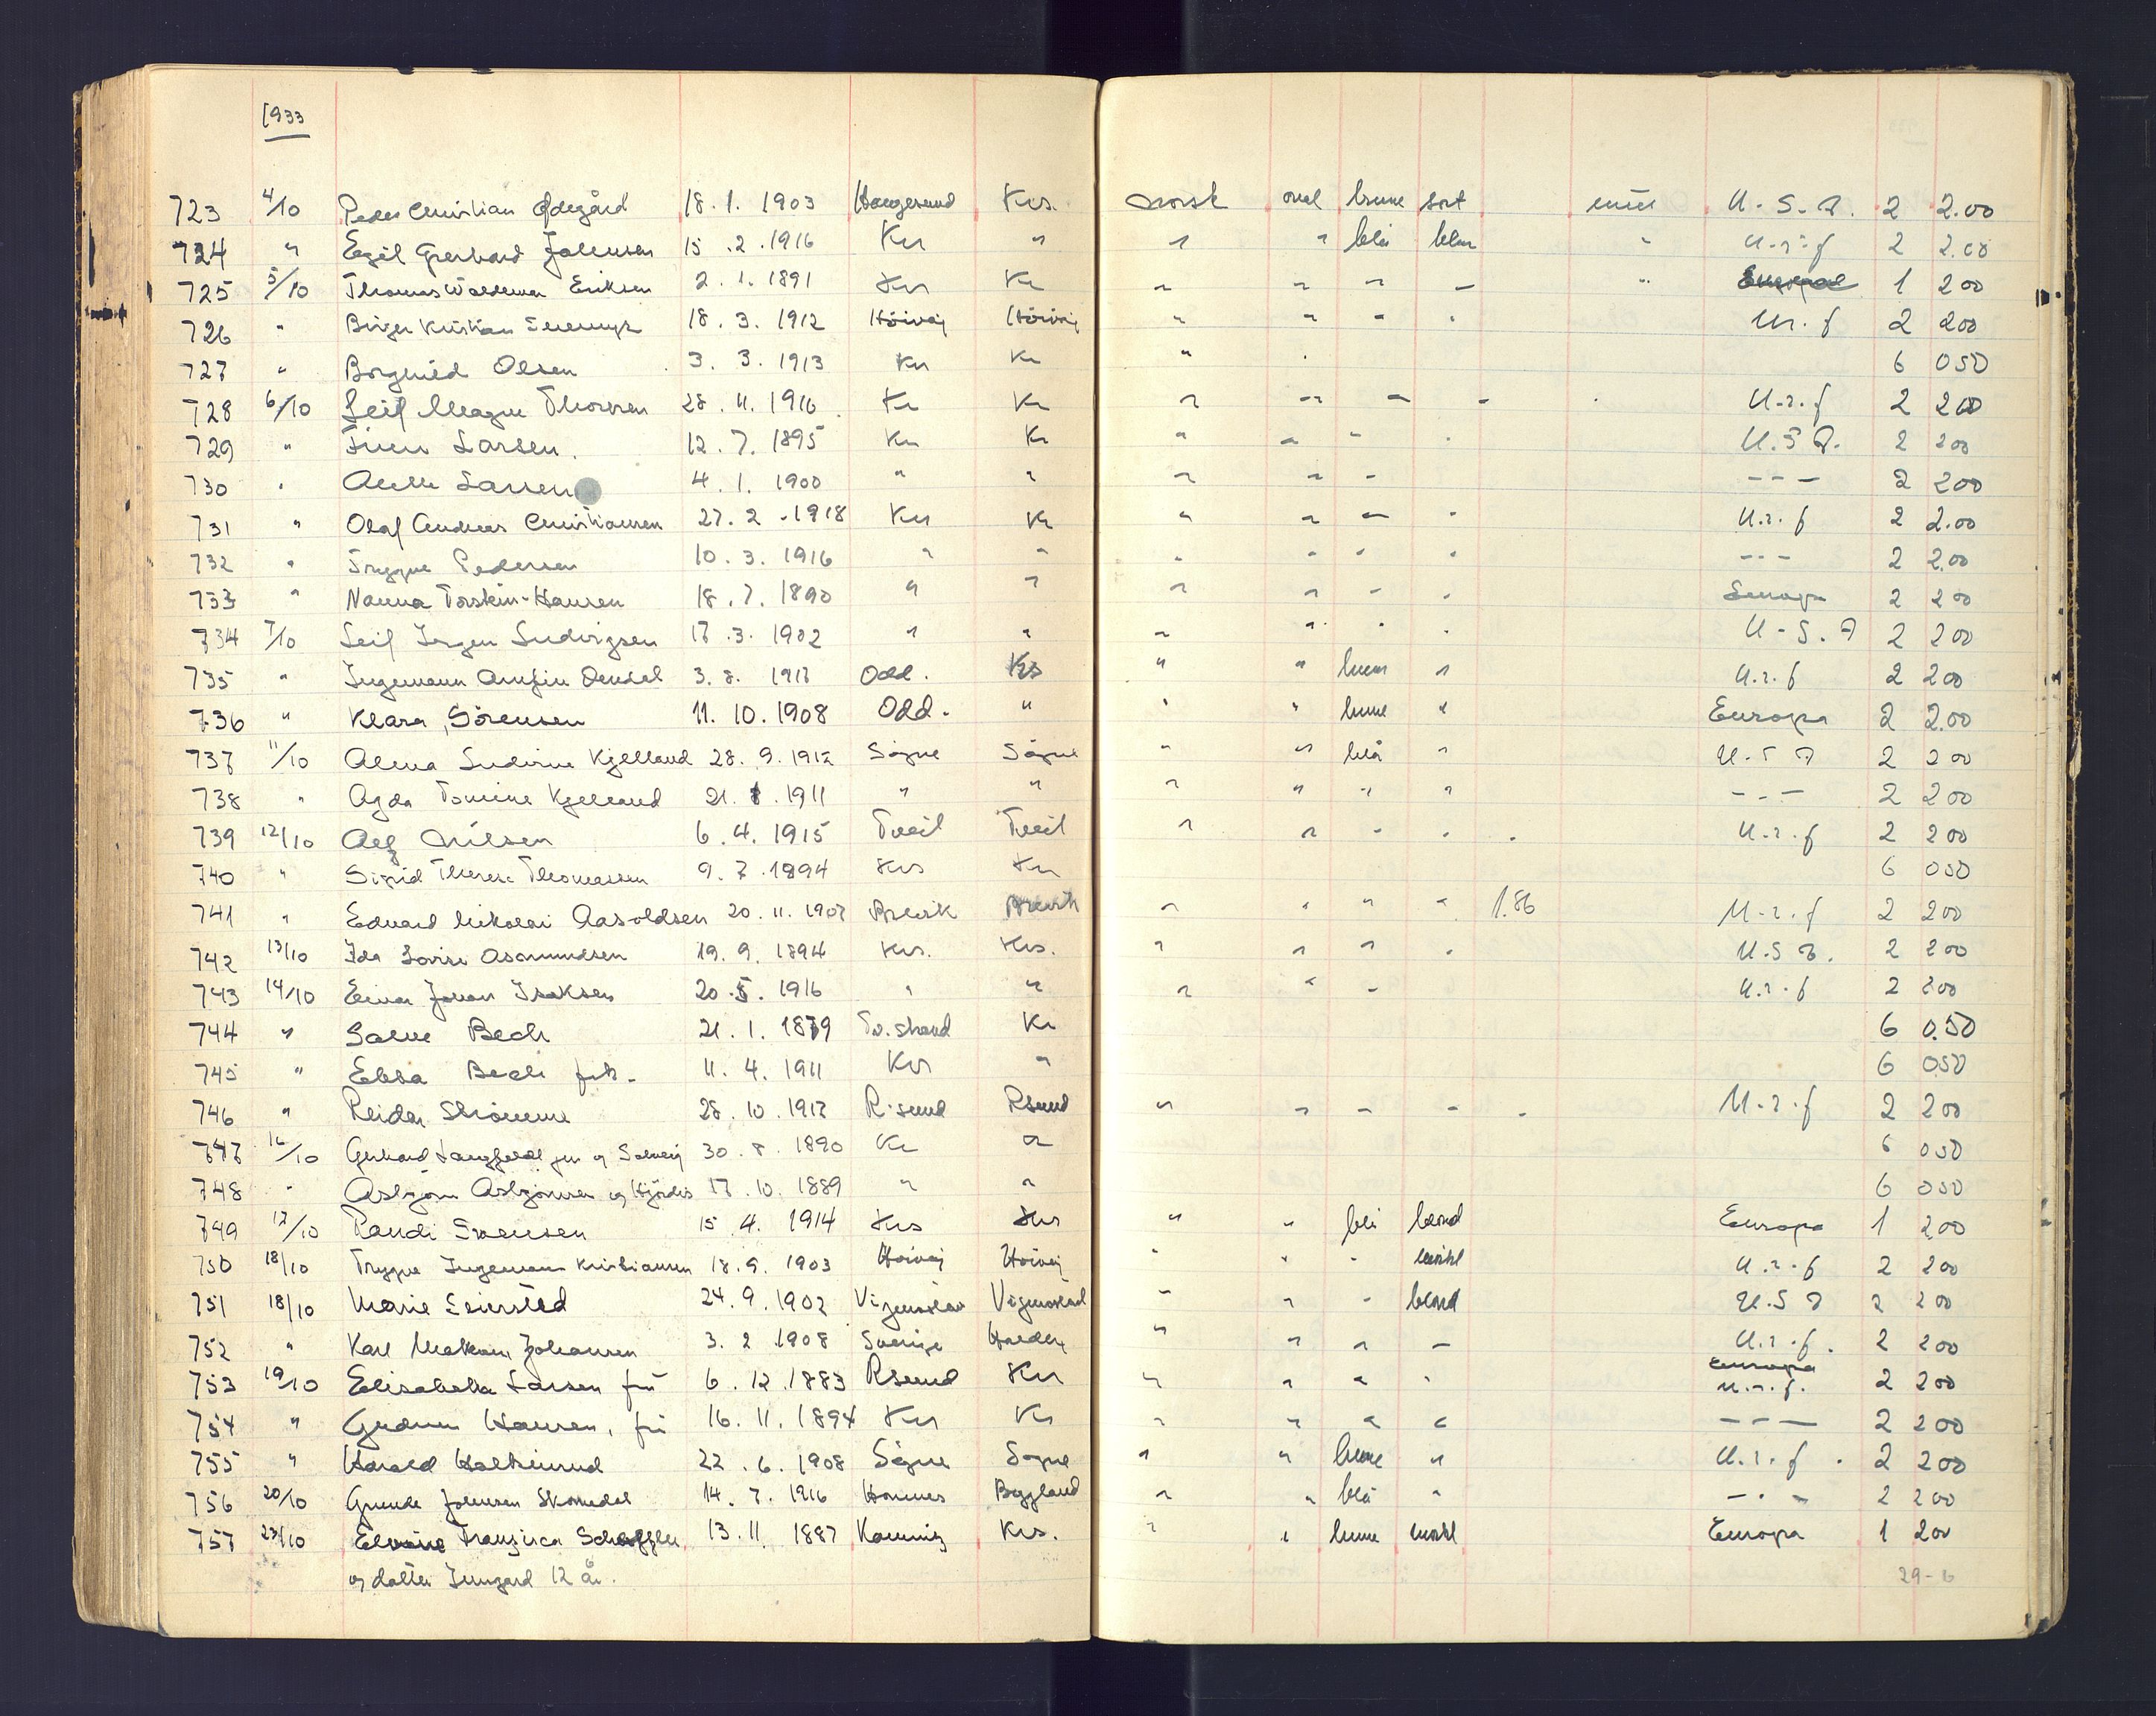 1933
723 4/10 Peder Christian Ødegård 18.1. 1903 Haugesund Krs. norsk oval brune sort U.S.A. 2 2.00
724 " Egil Gerhard Johnsen 15.2.1916 Krs " " " blå U.r.f 2 2.00
725 5/10 Thomas Waldemar Eriksen 2.1.1891 Krs Kr " " " " " Europa 1 200
726 " Birger Kristian 18.3.1912 Höivåg Höivåg " " " " U.r.f 2 200
727 " Borghild Olsen 3.3.1913 Krs Kr " 6 050
728 6/10 Leif Magne Thorsen 28.11.1916 Kr Kr " " " " U.r.f 2 200
729 " Larsen. 12.7.1895 Kr Kr " " " " U.S.A. 2 200
730 " Larsen 4.1.1900 " " " " " - - - 2 200
731 " Olaf Andreas Christiansen 27.2.1918 Krs Kr " " " " U.r.f 2 2.00
732 " Trygve Pedersen 10.3.1916 " " " " " " - - - 2 2.00
733 " Nanna Torskin-Hansen 18.7.1890 " " " " " " Europa 2 200
734 7/10 Leif Jørgen Ludvigsen 17.3.1902 " " " " " " U.S.A 2 200
735 " Ingemann Arnfin 3.8.1917 Odd. Krs " " brun " U.r.f 2 200
736 " Klara Sörensen 11.10.1908 Odd. " " " brune " Europa 2 2.00
737 11/10 Alma Ludvine Kjelland 28.9.1912 Sögne Sögne " " blå " U.S.A 2 200
738 " Agda Tomine Kjelland 21.8.1911 " " " " " " - - - 2 200
739 12/10 Alf Nilsen 6.4.1915 Tveit Tveit " " " " " U.r.f 2 200
740 " Sigrid Therese Thomassen 9.7.1894 Krs Kr 6 050
741 " Edvard Nikolai Aasoldsen 20.11.1907 Brevik Brevik " " " " 1.86 U.r.f 2 200
742 13/10 Ida Lovise Asmundsen 19.9.1894 Krs. Krs. " " " " U.S.A. 2 200
743 14/10 Einar Johan Isaksen 20.5.1916 " " " " " U.r.f 2 200
744 " Salve Bech 21.1.1879 Tv.strand Kr 6 0.50
745 " Ebba Bech frk. 11.4.1911 Krs " 6 050
746 " Reidar Strömme 28.10.1917 R.sund Rsund " " " " " U.r.f 2 200
747 16/10 Gerhard Langfeldt jun og Solveig 30.8.1890 Kr " 6 050
748 " Asbjørn Asbjørnsen og Hjördis 17.10.1889 " " 6 050
749 17/10 Randi Svensen 15.4.1914 Krs Krs " " blå blond Europa 1 2.00
750 18/10 Trygve Ingemann Kristiansen 18.9.1903 Höivåg Höivåg " " " mørkt U.r.f 2 200
751 18/10 Marie Seiersted 24.9.1902 Vigmostad Vigmostad " " " blond U.S.A 2 200
752 " Karl Johansen 3.2.1908 Sverige " " " " U.r.f. 2 200
753 19/10 Elisabeth Larsen frü 6.12.1883 Rsund Krs " " " " Europa U.r.f. 2 200
754 " Gudrun Hansen, frü 16.11.1894 Krs Kr " " " " - - - 2 200
755 " Harald 22.6.1908 Sögne Sogne " " brune " U.r.f. 2 200
756 20/10 Gunde Johnsen 14.7.1916 Hornnes Bygland " " blå " - - - 2 200
757 23/10 Franzisca 13.11.1887 Krs. " " brune mörkt Europa 1 200
og datter Irmgard 12 år. 29-6